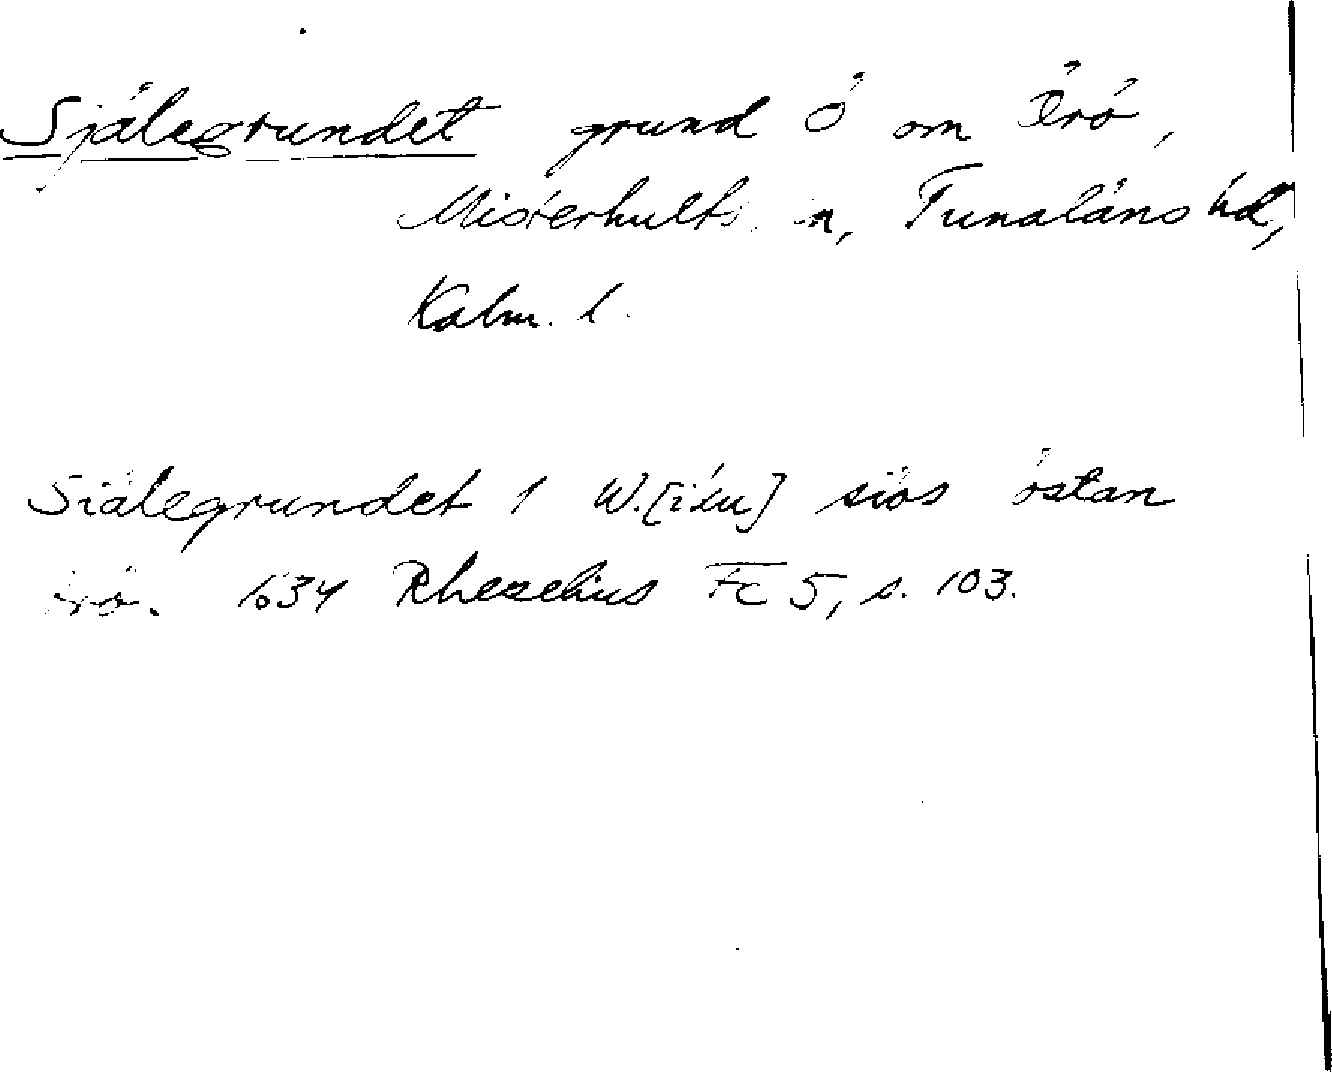 Själegrundet grund Ö om Örö,
Misterhults sn, Tunaläns hd,
Kalm. l.
Siälegrundet 1 W.[iku] siös östan
örö. 1634 Rhezelius Fc 5, s. 103.